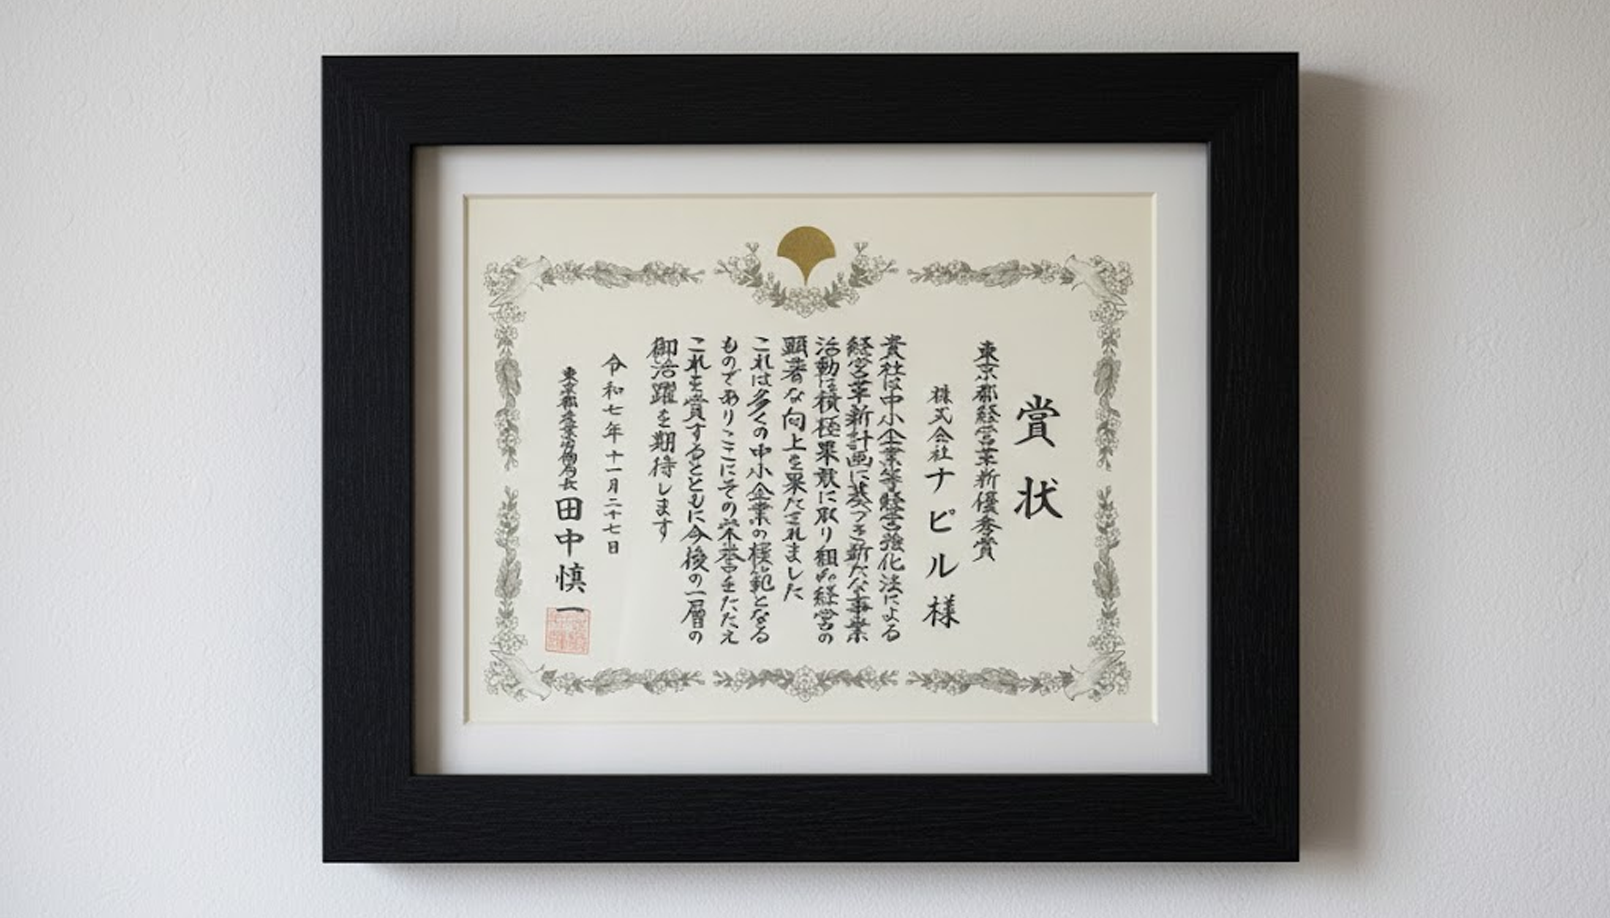 賞状
東京都経営革新優秀賞
株式会社ナピル様
貴社は中小企業等経営強化法による
経営革新計画に基づき新たな事業
活動に積極果敢に取り組み経営の
顕著な向上を果たされました
これは多くの中小企業の模範となる
ものでありここにその栄誉をたたえ
これを賞するとともに今後の一層の
御活躍を期待します
令和七年十一月二十七日
東京都産業労働局長 田中慎一